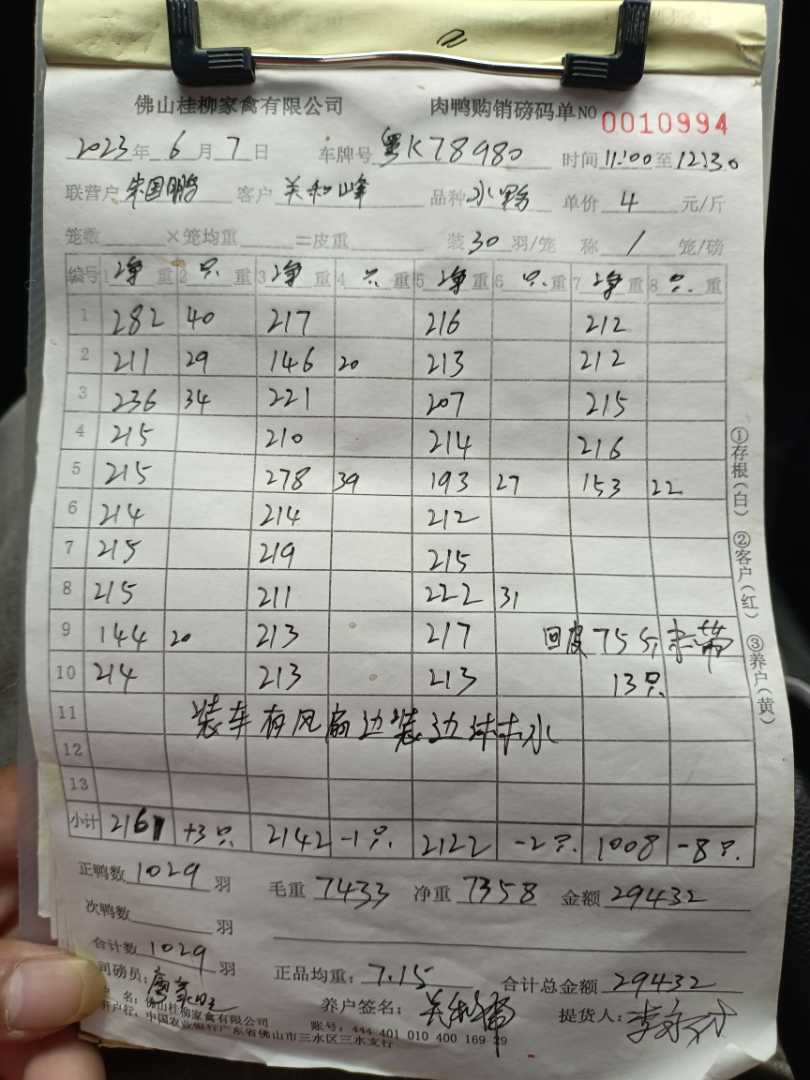 佛山桂柳家禽有限公司 肉鸭购销磅码单NO 0010994
2023年6月7日 车牌号 粤K78980 时间 11:00至12:30
联营户 国鹏 客户 关和峰 品种 水鸭 单价 4 元/斤
笼数 ×笼均重 =皮重 装30羽/笼 称 1 笼/磅
编号 1净重 2只重 3净重 4只重 5净重 6只重 7净重 8只重
1 282 40 217 216 212
2 211 29 146 20 213 212
3 236 34 221 207 215
4 215 210 214 216
5 215 278 39 193 27 153 22
6 214 214 212
7 215 219 215
8 215 211 222 31
9 144 20 213 217 回皮75斤 带
10 214 213 213 13只
11 装车有风扇边装边淋水
12
13
小计 2161 +3只 2142 -1只. 2122 -2只. 1008 -8只.
正鸭数 1029 羽 毛重 7433 净重 7358 金额 29432
次鸭数 羽
合计数 1029 羽 正品均重: 7.15 合计总金额 29432
司磅员: 养户签名: 提货人:
名: 佛山桂柳家禽有限公司
开户行: 中国农业银行广东省佛山市三水区三水支行 账号: 444 401 010 400 169 29
①存根(白) ②客户(红) ③养户(黄)